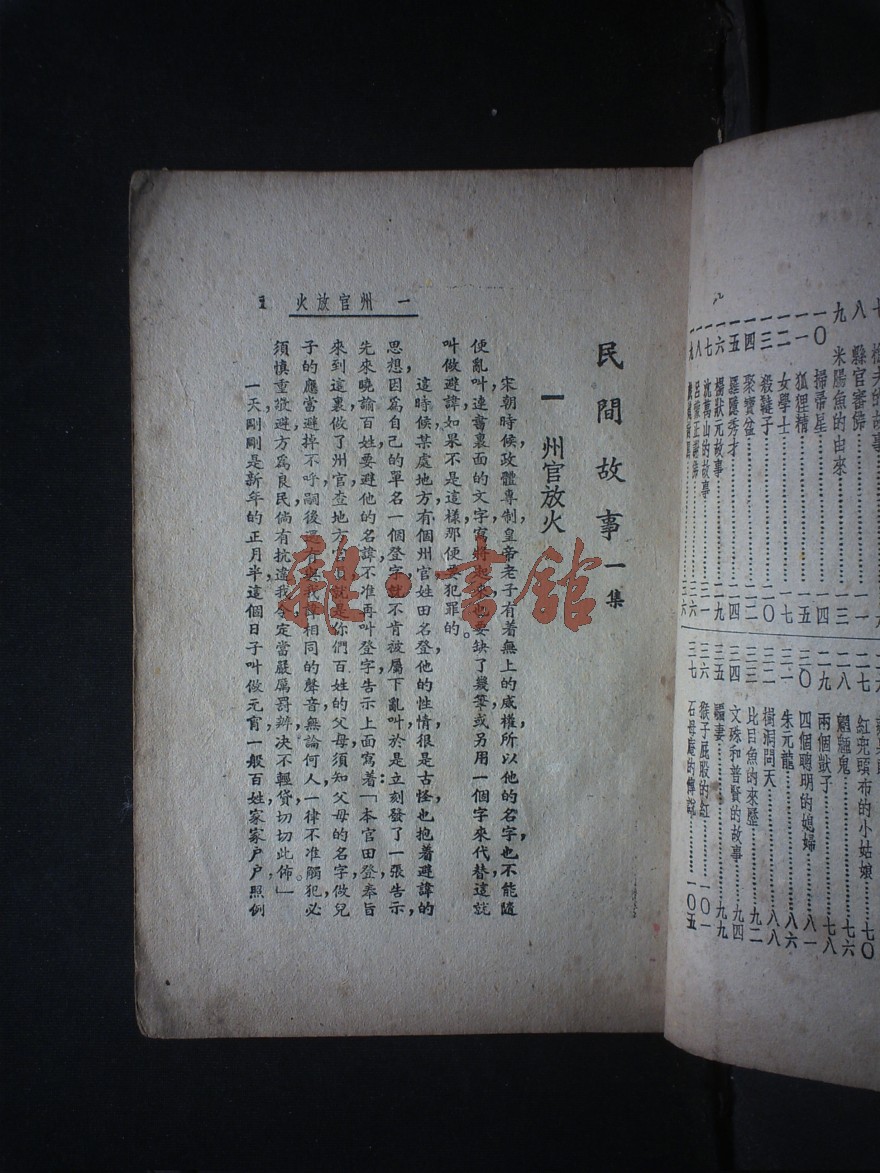 民間故事一集
一 州官放火
宋朝時候政體專制皇帝老子有着無上的威權所以他的名字也不能隨
便亂叫連書裏面的文字寫將起來也要缺了幾筆或另用一個字來代替這就
叫做避諱如果不是這樣那便要犯罪的。
這時候某處地方有個州官姓田名登他的性情很是古怪也抱着避諱的
思想因爲自己的單名一個登字就不肯被屬下亂叫於是立刻發了一張告示,
先來曉諭百姓要避他的名諱不准再叫登字告示上面寫着:「本官田登奉旨
來到這裏做了州官查地方官
就是你們百姓的父母須知父母的名字做兒
子的應當避
不呼嗣後
有與我諱相同的聲音無論何人,一律不准觸犯必
須慎重
避方爲良民倘有抗違我令定當嚴厲罰辦决不輕貸切切此佈。」
一天剛剛是新年的正月半,這個日子叫做元宵一般百姓家家戶戶照例
一 州官放火
1
雜·書館
八 縣官審
一一
九 米陽魚的由來
一三
一〇 掃帚星
一四
一一 狐狸精
一五
一二 女學士
一七
一三 殺韃子
二〇
一四 聚寶盆
二二
一五
秀才
二四
一六 楊狀元故事
二九
一七 沈萬山的故事
三一
一八 呂蒙正
二六
紅兜頭布的小姑娘
七〇
二七
鬼
七六
二八 兩個獃子
七八
二九 四個聰明的媳婦
八一
三〇 朱元龍
八六
三一 樹洞問天
八八
三二 比目魚的來歷
九二
三三 文珠和普賢的故事
九四
三四
妻
九九
三五 猴子屁股的紅
一〇一
三六 石母
的傳說
一〇五
三七